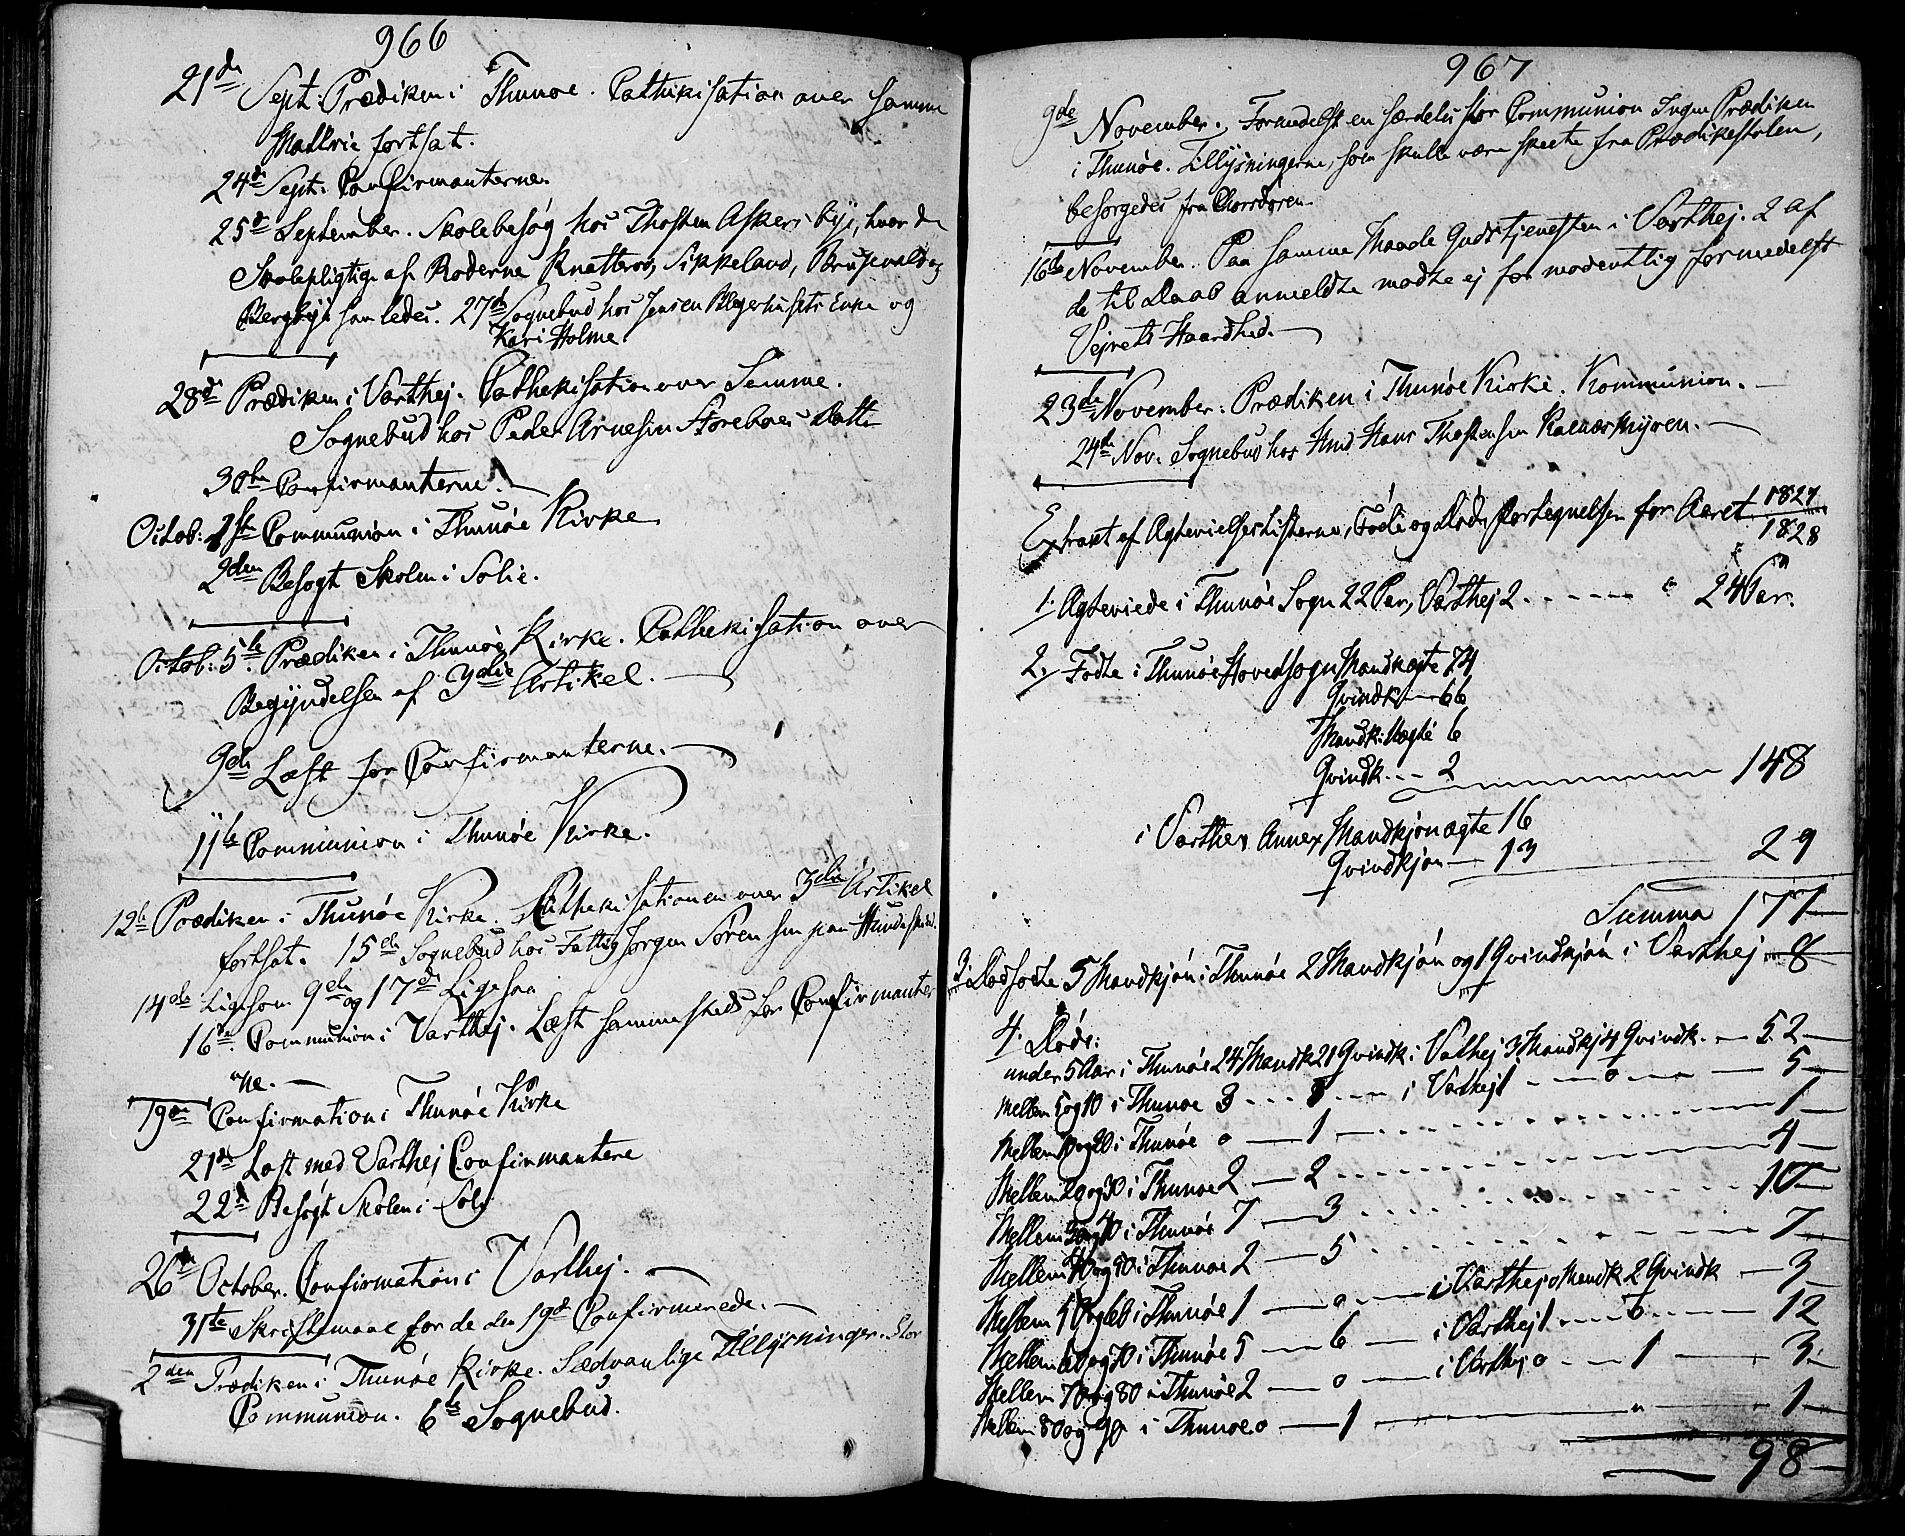 966
21de Sept: Prædiken i Thunøe. Cathekisation over samme
Matterie fortsat.
24de Sept: Confirmanterne.
25d September. Skolebesøg hos Thosten Askers bye, hvor de
Skolepligtige af Roderne Knatterø, Sikkeland, Brusevold og
Bergbye samledes. 27de Sognebud hos Jensen Enke og
Kari Holme
28de Prædiken i Varthej. Cathekisation over Samme.
Sognebud hos Peder Arnesen Storeboes
30te Confirmanterne.
Octob: 1ste Communion i Thunøe Kirke
2den Besøgt Skolen i Solie.
Octob: 5te Prædiken i Thunøe Kirke. Cathekisation over
Begyndelsen af 3die Artikel.
9de Læst for Confirmanterne.
11te Communion i Thunøe Kirke.
12te Prædiken i Thunøe Kirke. Cathekisationen over 3die Artikel
fortsat. 15de Sognebud hos Fattig Jørgen Sørensen paa
14de Ligesom 9de og 17de Ligesaa
16te Communion i Varthej. Læst sammesteds for Confirmanter
ne.
19de Confirmation i Thunøe Kirke
21de Læst med Varthej Confirmantere
22d Besøgt Skolen i Solj
26de October. Confirmation i Varthej.
31te Skriftemaal for de den 19de Confirmerede.
2den Prædiken i Thunøe Kirke. Sædvanlige Tillysninger. Stor
Communion. 6te Sognebud.
967
9de November. Formedelst en særdeles stor Communion Ingen Prædiken
i Thunøe. Tillysningerne, som skulle være skeete fra Prædikestolen,
besørgedes fra Chorsdøren.
16de November. Paa samme Maade Gudstjenesten i Varthej. 2 af
de til Daab anmeldte mødte ej formodentlig formedelst
Vejrets Haardhed.
23de November: Prædiken i Thunøe Kirke. Kommunion.
24de Nov. Sognebud hos Hans Thostensen
Extract af Ægtevielseslisterne, Føde og Døds fortegnelsen for Aaret 1827
1828
1. Ægteviede i Thunøe Sogn 22 Par, Varthej 2 24 Par.
2. Fødte i Thunøe Hovedsogn Mandk ægte 74
Qvindk 66
Mandk: uægte 6
Qvindk 2 148
i Varthej Annex Mandkjøn ægte 16
Qvindkjøn 13 29
Summa 177
3. Dødfødte 5 Mandkjøn i Thunøe 2 Mandkjøn og 1 Qvindkjøn i Varthej 8
4. Døde:
under 5 Aar i Thunøe 24 Mandk 21 Qvindk i Vathej 3 Mandkj 4 Qvindk. 52
Mellem 5 og 10 i Thunøe 3 i Varthej 1 o 5
Mellem 10 og 20 i Thunøe o 1 1
Mellem 20 og 30 i Thunøe 2 2 4
Mellem 30 og 40 i Thunøe 7 3 10
Mellem 40 og 50 i Thunøe 2 5 7
Mellem 50 og 60 i Thunøe 1 o i Varthej o Mandk 2 Qvindk 3
Mellem 60 og 70 i Thunøe 5 6 i Varthej 1 o 12
Mellem 70 og 80 i Thunøe 2 o i Varthej o 1 3
Mellem 80 og 90 i Thunøe o 1 1
98